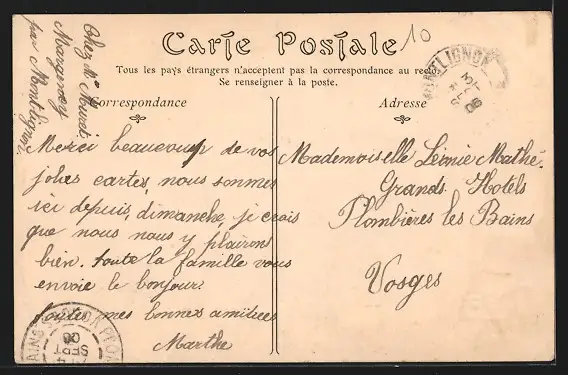 Carte Postale
10
Tous les pays étrangers n'acceptent pas la correspondance au recto
Se renseigner à la poste.
Correspondance
Adresse
Chez Mr
Margency
par Montlignon
Merci beaucoup de vos
jolies cartes, nous sommes
ici depuis dimanche, je crois
que nous nous y plairons
bien. toute la famille vous
envoie le bonjour
Toutes mes bonnes amitiées
Marthe
Mademoiselle Léonie Mathé.
Grands Hotels
Plombières les Bains
Vosges
MONTLIGNON
SEPT